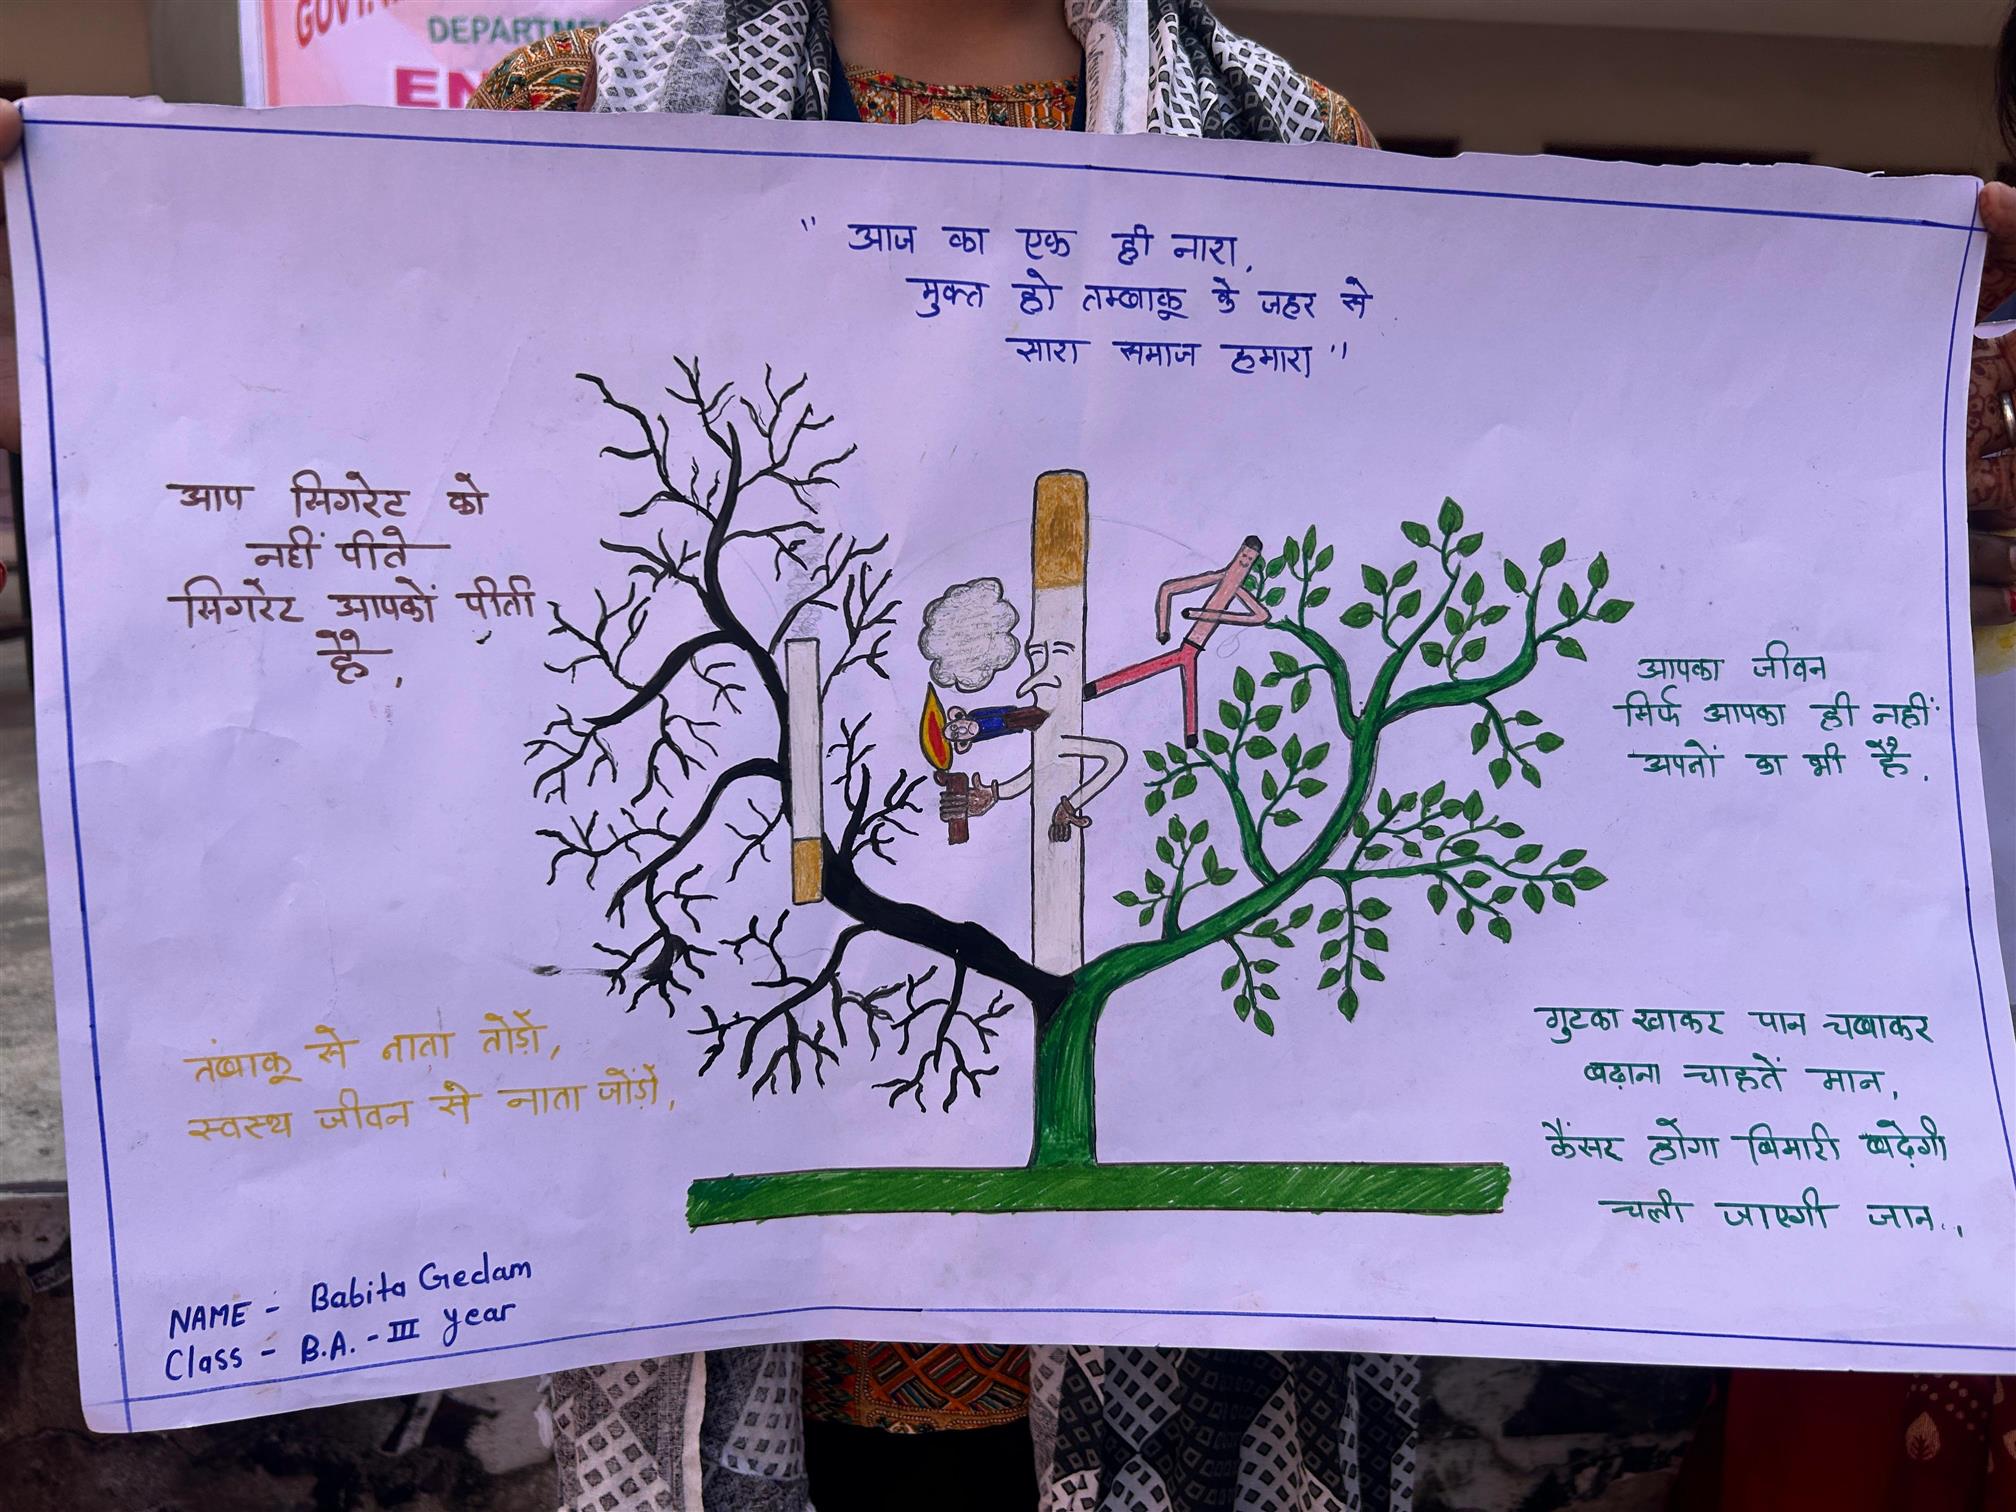 DEPARTME
EN
" आज का एक ही नारा,
मुक्त हो तम्बाकू के जहर से
सारा समाज हमारा "
आप सिगरेट को
नहीं पीते
सिगरेट आपकों पीती
है,
आपका जीवन
सिर्फ आपका ही नहीं
अपनों का भी है.
तंबाकू से नाता तोड़ों,
स्वस्थ जीवन से नाता जोंड़ों,
गुटका खाकर पान चबाकर
बढ़ाना चाहतें मान,
कैंसर होगा बिमारी बढ़ेगी
चली जाएगी जान..
NAME - Babita Gedam
Class - B.A. - III year